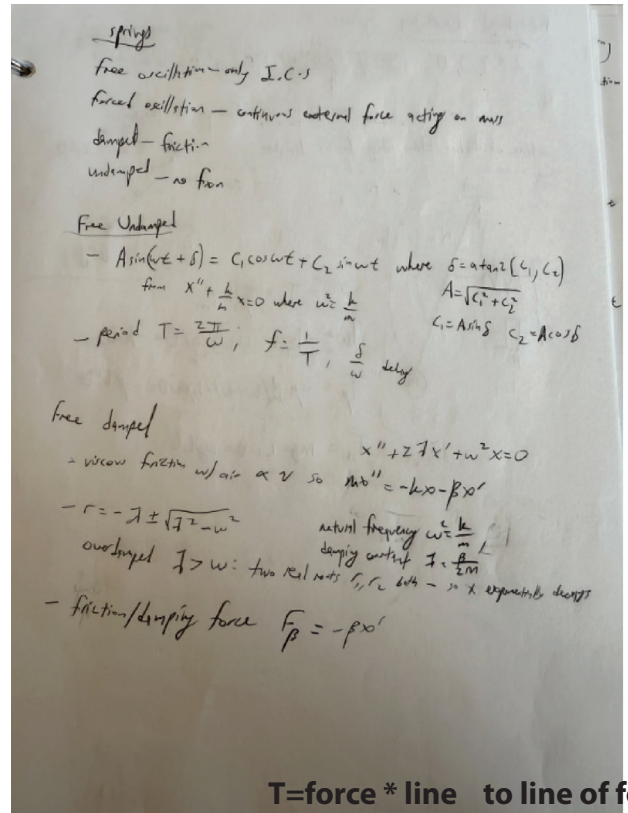 springs
free oscillation – only I.C.s
forced oscillation — continuous external force acting on mass
damped – friction
undamped — no fron
Free Undamped
– A sin(ωt + δ) = C₁ cos ωt + C₂ sin ωt where δ = atan2(C₁, C₂)
from x'' + k/m x = 0 where ω² = k/m
A = √(C₁² + C₂²)
C₁ = A sin δ C₂ = A cos δ
– period T = 2π/ω ; f = 1/T , δ/ω delay
free damped
x'' + 2λx' + ω²x = 0
- viscous friction w/ air ∝ v so mx'' = -kx - βx'
– r = -λ ± √(λ² - ω²)
natural frequency ω² = k/m
damping constant λ = β/2m
overdamped λ > ω: two real roots r₁, r₂ both – so x exponentially decays
– friction/damping force F_β = -βx'
T=force * line to line of f